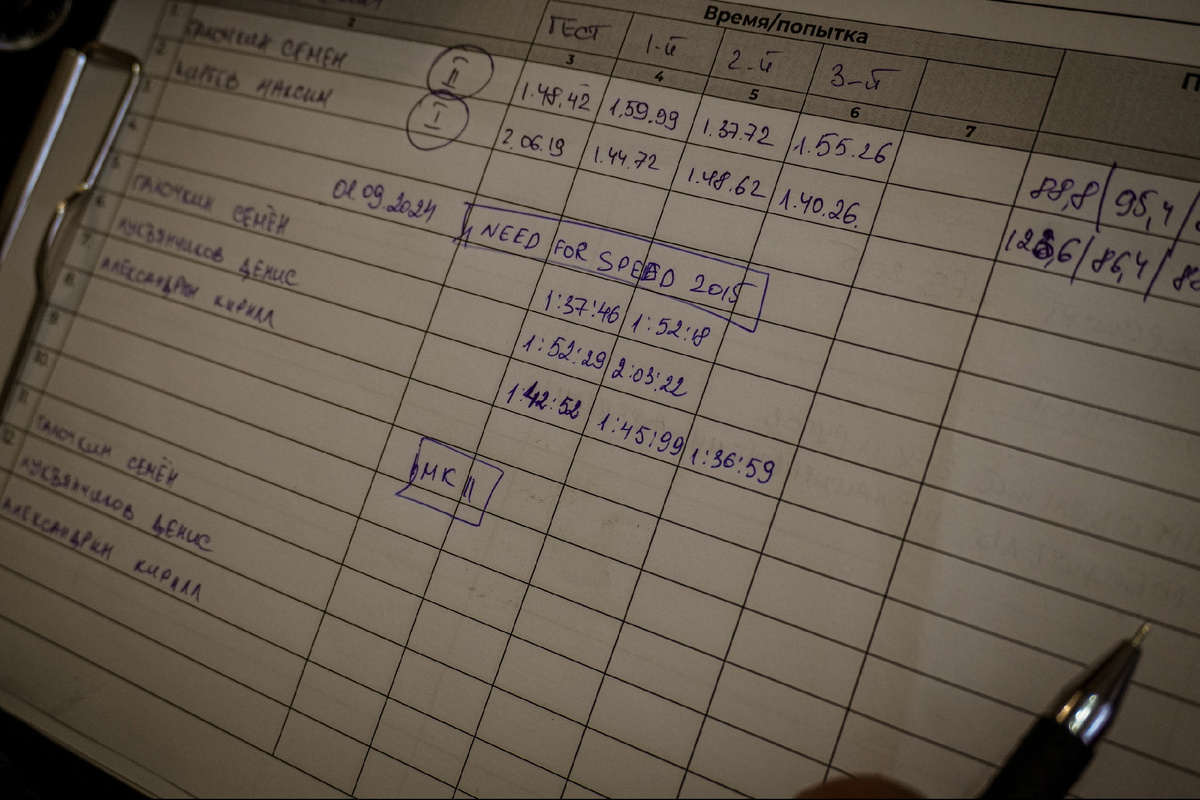 Время/попытка
ТЕСТ 1-й 2-й 3-й
2 3 4 5 6 7
1 ГАЛОЧКИН СЕМЁН II 1.48,42 1,59.99 1.37.72 1.55.26 88,8/95,4/
2 МАКСИМ I 2.06.19 1.44.72 1.48.62 1.40.26. /86,4/
3
4 01.09.2024 NEED FOR SPEED 2015
5 ГАЛОЧКИН СЕМЁН 1:37:46 1:52:18
6 ЛУКЬЯНЧИКОВ ДЕНИС 1:52:29 2:03:22
7 АЛЕКСАНДРИН КИРИЛЛ 1:42:52 1:45:99 1:36:59
8
9
10 MK 11
11 ГАЛОЧКИН СЕМЁН
12 ЛУКЬЯНЧИКОВ ДЕНИС
АЛЕКСАНДРИН КИРИЛЛ